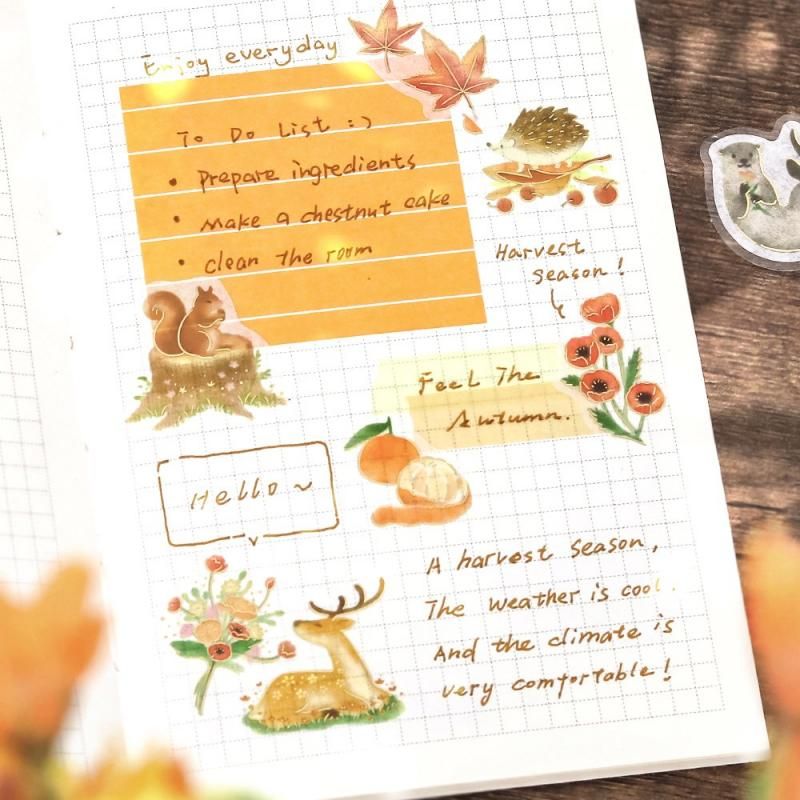 Enjoy everyday
To Do List :)
• Prepare ingredients
• Make a chestnut cake
• clean the room
Harvest
Season!
Feel The
Autumn.
Hello ~
A harvest season,
The weather is cool.
And the climate is
very comfortable!